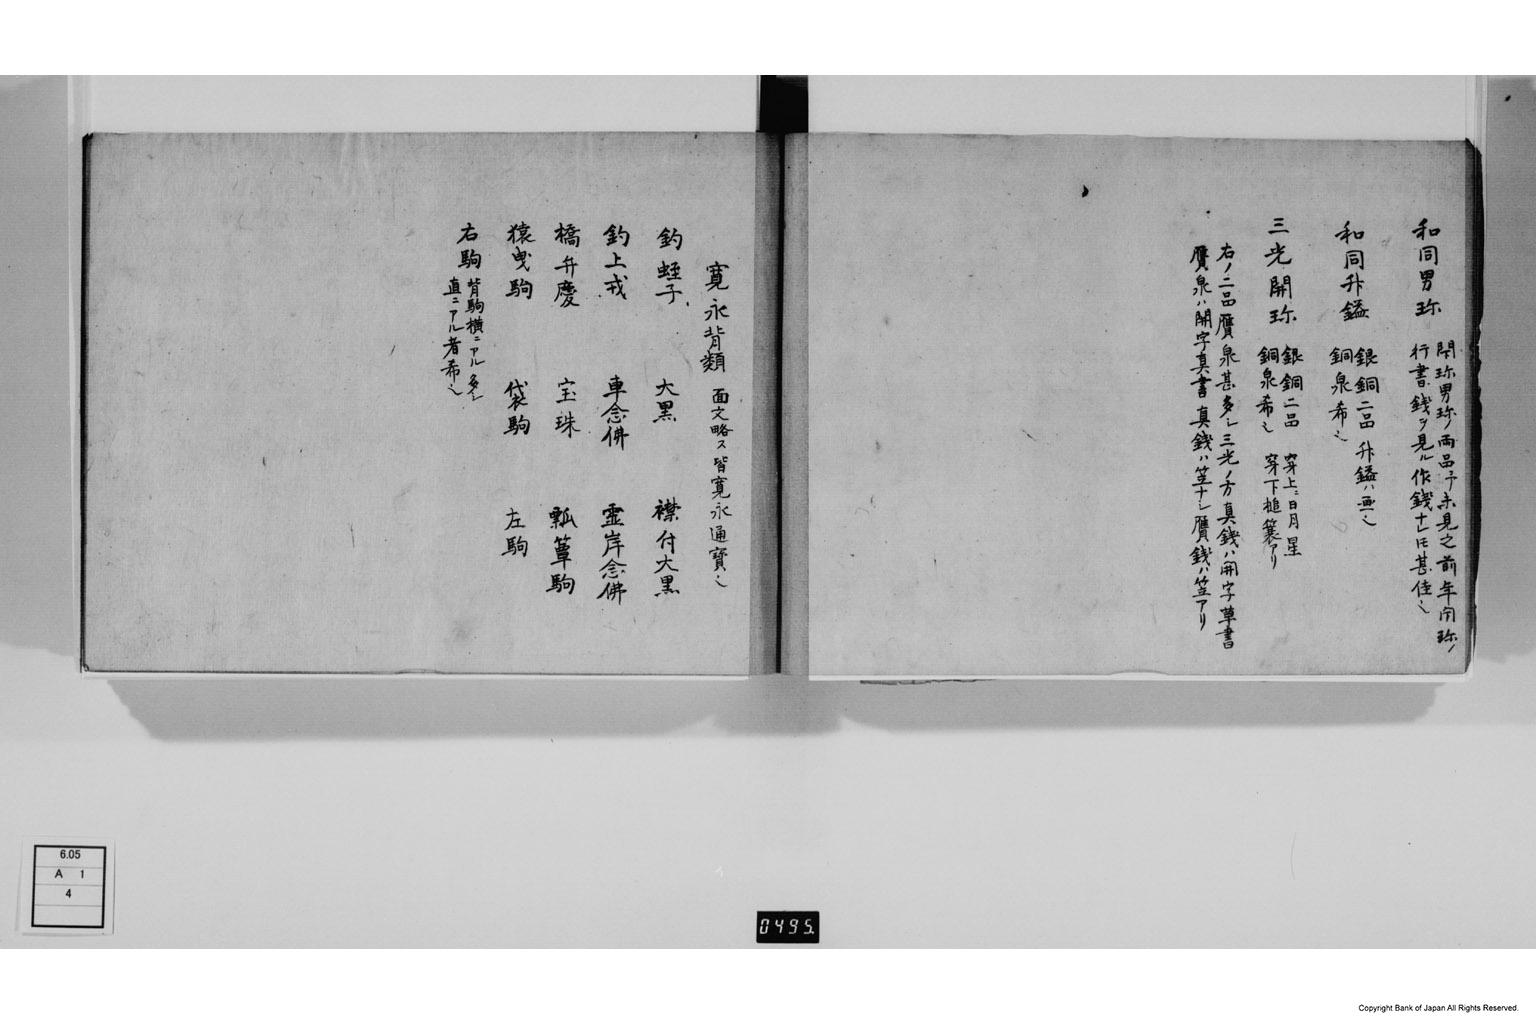 和同男珎
開珎男珎ノ両品予未見之前年開珎ノ
行書銭ヲ見ル作銭ナレ𪜈甚佳シ
和同升鎰
銀銅二品 升鎰ハ画也
銅泉希也
三光開珎
銀銅二品 穿上ニ日月星
銅泉希也 穿下槌簑アリ
右ノ二品贋泉甚多シ三光ノ方真銭ハ開字草書
贋泉ハ開字真書真銭ハ笠ナシ贋銭ハ笠アリ
寛永背類 面文略ス皆寛永通寳也
釣蛭子 大黒 襟付大黒
釣上戎 車念佛 霊岸念佛
橋弁慶 宝珠 瓢簞駒
猿曳駒 袋駒 左駒
右駒
背駒横ニアル多シ
直ニアル者希也
6.05
A 1
4
0495.
Copyright Bank of Japan All Rights Reserved.